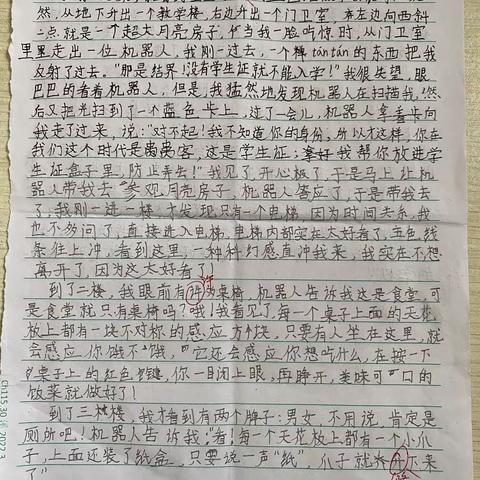 然,从地下升出一个教学楼,右边升出一个门卫室,在左边向西斜
一点就是一个超大月亮房子,当我一脸吃惊时,从门卫室
里走出一位机器人,我刚一过去,一个弹tántán的东西把我
反射了过去。"那是结界!没有学生证就不能入学!"我很失望,眼
巴巴的看着机器人,但是,我猛然地发现机器人在扫描我,然
后又把光扫到了一个蓝色卡上,过了一会儿,机器人拿着卡向
我走了过来,说:"对不起!我不知道你的身份,所以才这样,你在
我们这个时代是贵客,这是学生证,我帮你放进学
生证盒子里,防止弄丢!"我见了,开心极了,于是马上让机
器人带我去参观月亮房子,机器人答应了,于是带我去
了,我刚一进一楼,才发现只有一个电梯,因为时间关系,我
也不多问了,直接进入电梯,电梯内部实在太好看了,五色线
条往上冲,看到这里,一种科幻感直冲我来,我实在不想
离开了,因为这太好看了
到了二楼,我眼前有许多桌椅,机器人告诉我这是食堂,可
是食堂就只有桌椅吗?哦!我看见了,每一个桌子上面的天花
板上都有一块不对称的感应方块,只要有人坐在这里,就
会感应你饿不饿,它还会感应你想吃什么,在按一下
桌子上的红色按键,你一目闭上眼,再睁开,美味可口的
饭菜就做好了!
到了三楼,我才看到有两个牌子:男女,不用说,肯定是
厕所吧!机器人告诉我:"看!每一个天花板上都有一个小爪
子,上面还装了纸盒,只要说一声"纸",爪子就会升下来
了"